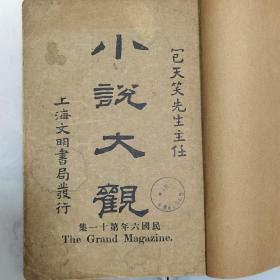 包天笑先生主任
小說大觀
上海文明書局發行
民國六年第十一集
The Grand Magazine.